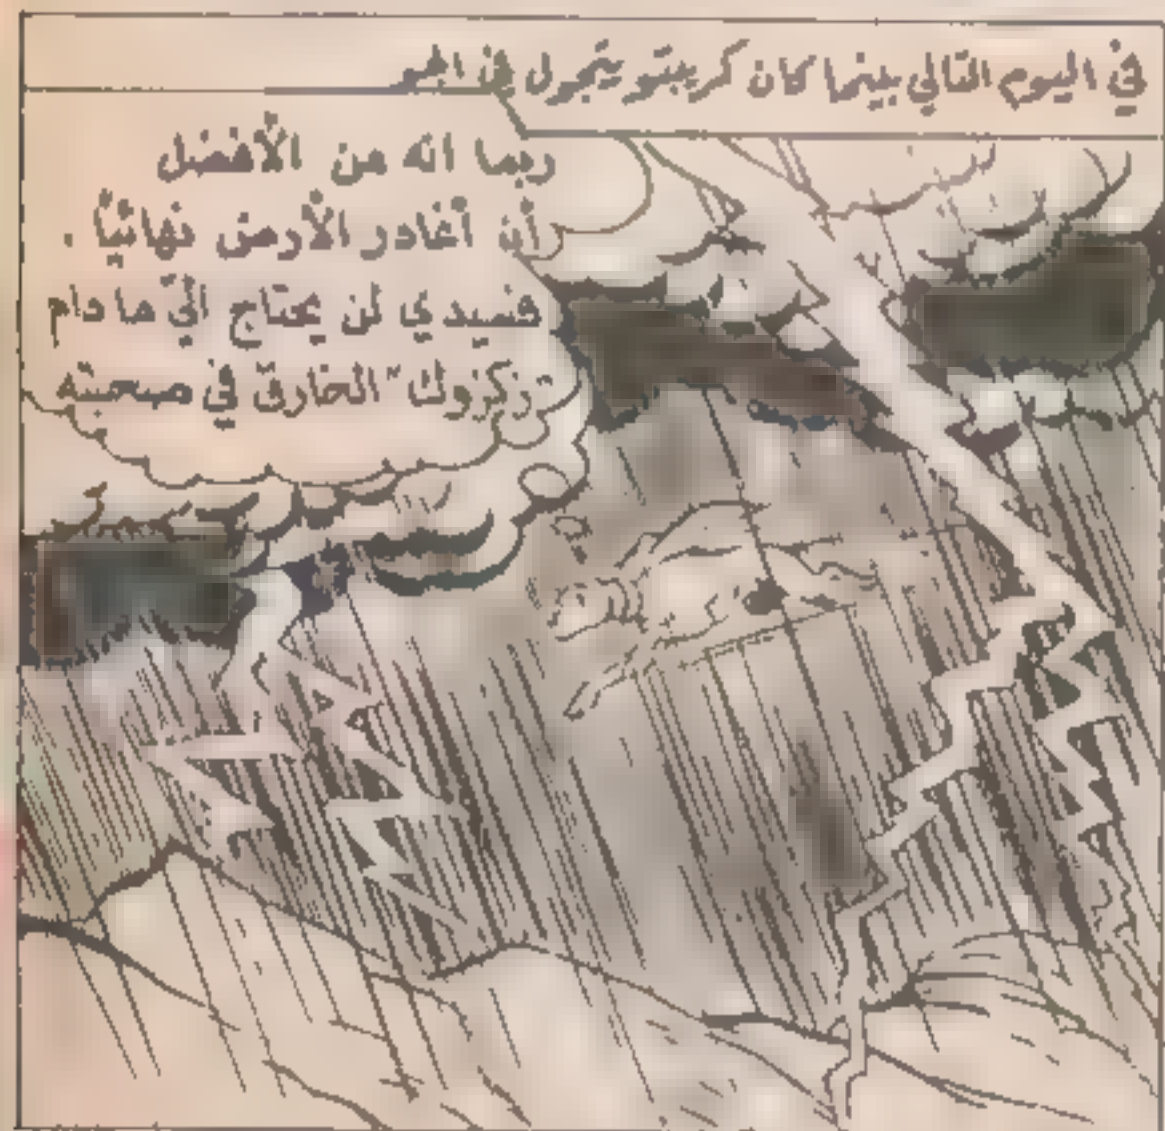 في اليوم التالي بينما كان كريبتو يتجول في الجو
ربما انه من الأفضل
أن أغادر الأرض نهائياً .
فسيدي لن يحتاج اليّ ما دام
"زكزوك" الخارق في صحبته